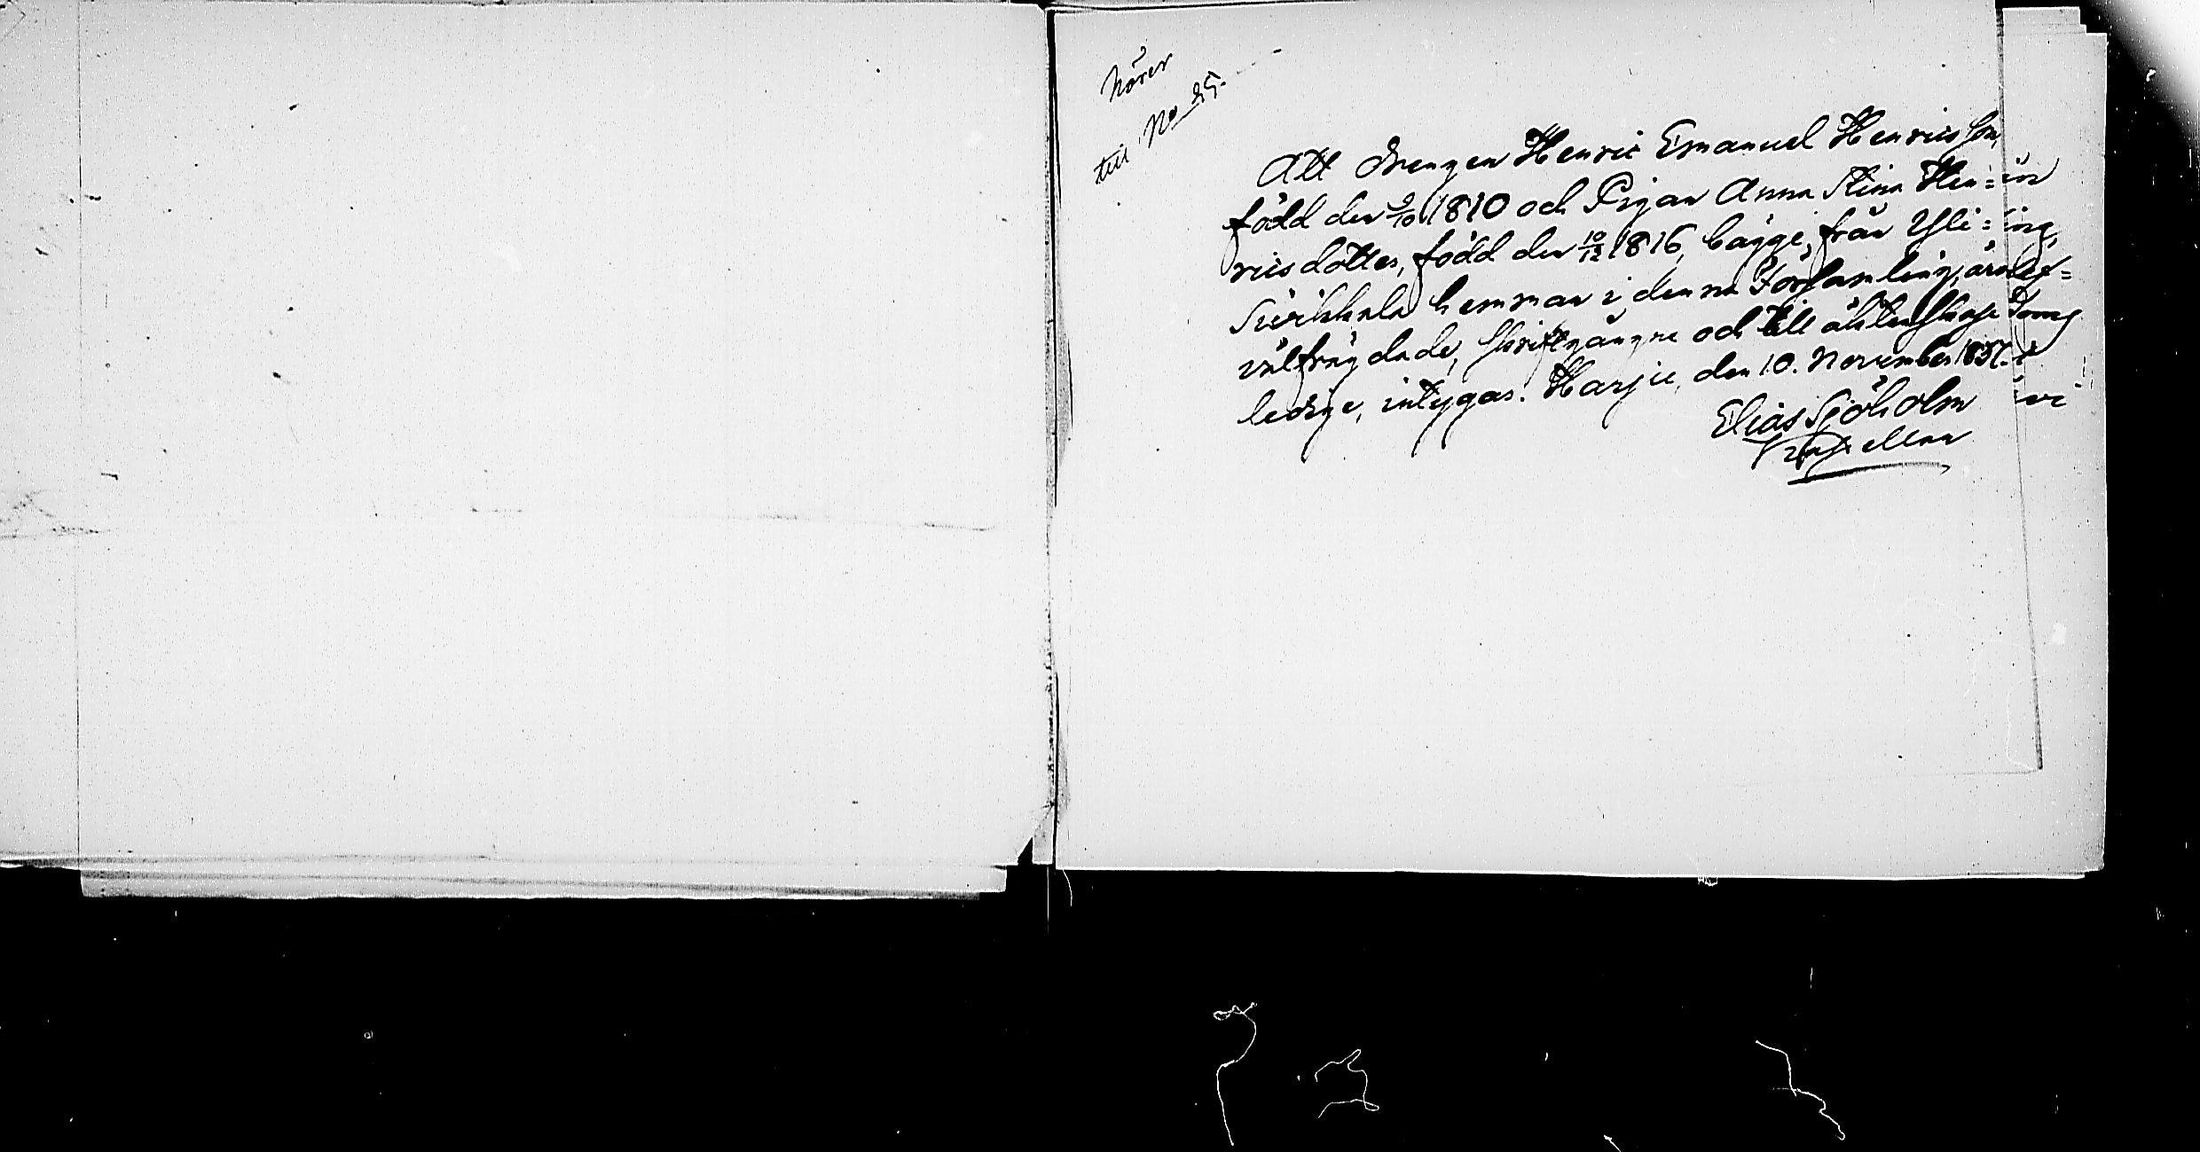 hörer
till No 25.
Att Drengen Henric Emanuel Henricsson,
född den 9/10 1810 och Pigan Anna Stina Hen=
ricsdotter, född den 10/12 1816, bägge, från Yli=
Sirikkala hemman i denna Församling, äro
välfrägdade, skriftgångne och till äktenskap
ledige, intygas. Karjis, den 10. November 1837.
Elias Sjöholm
Kapellan